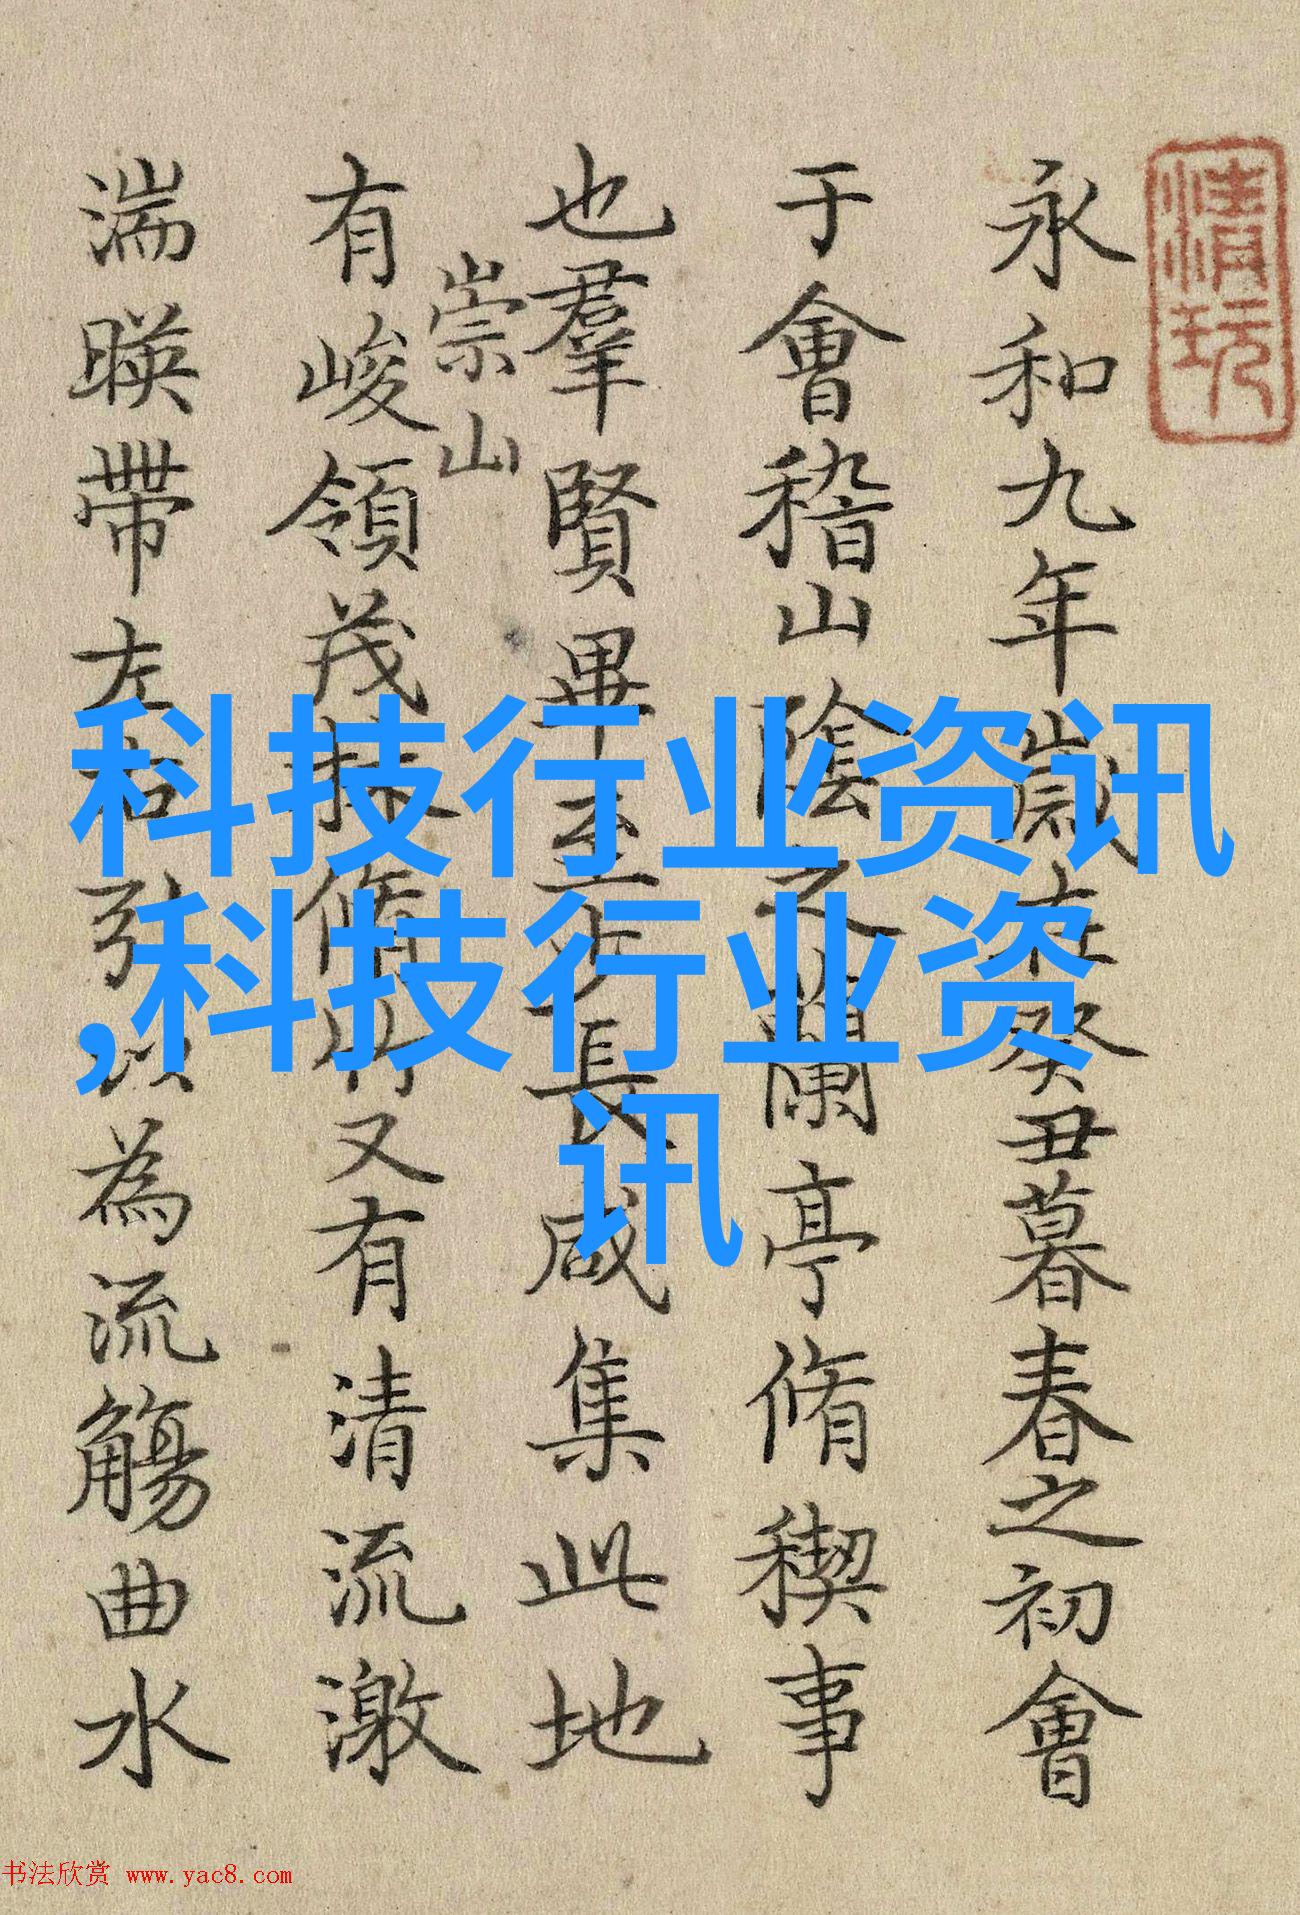 清玩
永和九年歲在癸丑暮春之初會
于會稽山陰之蘭亭脩稧事
也羣賢畢至少長咸集此地
崇山
有峻領茂林脩竹又有清流激
湍暎帶左右引以為流觴曲水
科技行业资讯
,科技行业资
讯
书法欣赏 www.yac8.com